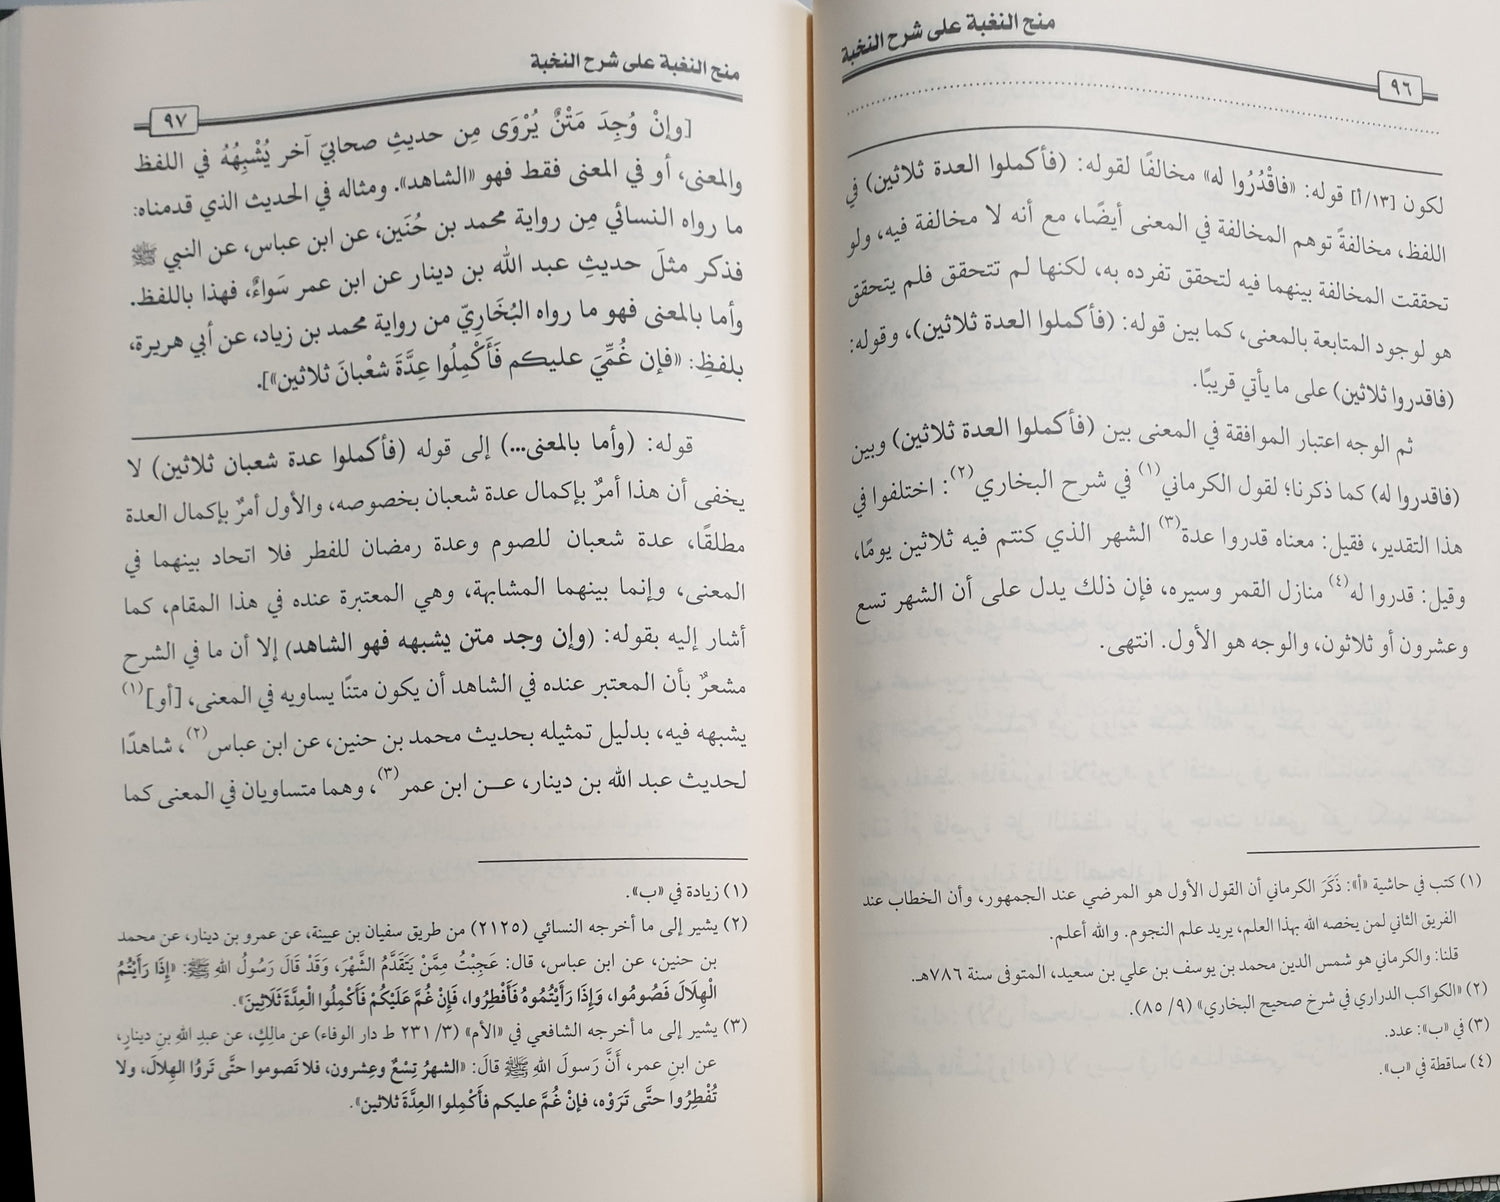 منح النغبة على شرح النخبة
٩٦
لكون [١٣/أ] قوله: «فاقْدُرُوا له» مخالفًا لقوله: (فأكملوا العدة ثلاثين) في
اللفظ، مخالفةً توهم المخالفة في المعنى أيضًا، مع أنه لا مخالفة فيه، ولو
تحققت المخالفة بينهما فيه لتحقق تفرده به، لكنها لم تتحقق فلم يتحقق
هو لوجود المتابعة بالمعنى، كما بين قوله: (فأكملوا العدة ثلاثين)، وقوله:
(فاقدروا ثلاثين) على ما يأتي قريبًا.
ثم الوجه اعتبار الموافقة في المعنى بين (فأكملوا العدة ثلاثين) وبين
(فاقدروا له) كما ذكرنا؛ لقول الكرماني(١) في شرح البخاري(٢): اختلفوا في
هذا التقدير، فقيل: معناه قدروا عدة(٣) الشهر الذي كنتم فيه ثلاثين يومًا،
وقيل: قدروا له(٤) منازل القمر وسيره، فإن ذلك يدل على أن الشهر تسع
وعشرون أو ثلاثون، والوجه هو الأول. انتهى.
(١) كتب في حاشية «أ»: ذَكَرَ الكرماني أن القول الأول هو المرضي عند الجمهور، وأن الخطاب عند
الفريق الثاني لمن يخصه الله بهذا العلم، يريد علم النجوم. والله أعلم.
قلنا: والكرماني هو شمس الدين محمد بن يوسف بن علي بن سعيد، المتوفى سنة ٧٨٦هـ.
(٢) «الكواكب الدراري في شرخ صحيح البخاري» (٩/ ٨٥).
(٣) في «ب»: عدد.
(٤) ساقطة في «ب».
منح النغبة على شرح النخبة
٩٧
[وإنْ وُجِدَ مَتْنٌ يُرْوَى مِن حديثِ صحابيّ آخر يُشْبِهُهُ في اللفظ
والمعنى، أو في المعنى فقط فهو «الشاهد». ومثاله في الحديث الذي قدمناه:
ما رواه النسائي مِن رواية محمد بن حُنَين، عن ابن عباس، عن النبي ﷺ
فذكر مثلَ حديثِ عبد الله بن دينار عن ابن عمر سَواءٌ، فهذا باللفظ.
وأما بالمعنى فهو ما رواه البُخَارِيّ من رواية محمد بن زياد، عن أبي هريرة،
بلفظِ: «فإن غُمِّيَ عليكم فَأَكْمِلُوا عِدَّةَ شعْبانَ ثلاثين»].
قوله: (وأما بالمعنى...) إلى قوله (فأكملوا عدة شعبان ثلاثين) لا
يخفى أن هذا أمرٌ بإكمال عدة شعبان بخصوصه، والأول أمرٌ بإكمال العدة
مطلقًا، عدة شعبان للصوم وعدة رمضان للفطر فلا اتحاد بينهما في
المعنى، وإنما بينهما المشابهة، وهي المعتبرة عنده في هذا المقام، كما
أشار إليه بقوله: (وإن وجد متن يشبهه فهو الشاهد) إلا أن ما في الشرح
مشعرٌ بأن المعتبر عنده في الشاهد أن يكون متنًا يساويه في المعنى، [أو](١)
يشبهه فيه، بدليل تمثيله بحديث محمد بن حنين، عن ابن عباس(٢)، شاهدًا
لحديث عبد الله بن دينار، عـن ابن عمر(٣)، وهما متساويان في المعنى كما
(١) زيادة في «ب».
(٢) يشير إلى ما أخرجه النسائي (٢١٢٥) من طريق سفيان بن عيينة، عن عمرو بن دينار، عن محمد
بن حنين، عن ابن عباس، قال: عَجِبْتُ مِمَّنْ يَتَقَدَّمُ الشَّهْرَ، وَقَدْ قَالَ رَسُولُ اللهِ ﷺ: «إِذَا رَأَيْتُمُ
الْهِلَالَ فَصُومُوا، وَإِذَا رَأَيْتُمُوهُ فَأَفْطِرُوا، فَإِنْ غُمَّ عَلَيْكُمْ فَأَكْمِلُوا الْعِدَّةَ ثَلَاثِينَ».
(٣) يشير إلى ما أخرجه الشافعي في «الأم» (٣/ ٢٣١ ط دار الوفاء) عن مالِكٍ، عن عبدِ اللهِ بنِ دينارٍ،
عن ابنِ عمر، أنَّ رَسولَ اللهِ ﷺ قالَ: «الشهرُ تِسْعٌ وعِشرون، فلا تَصوموا حتَّى تَروُا الهِلالَ، ولا
تُفْطِرُوا حتَّى تَرَوْه، فإنْ غُمَّ عليكم فأَكْمِلوا العِدَّةَ ثلاثين».